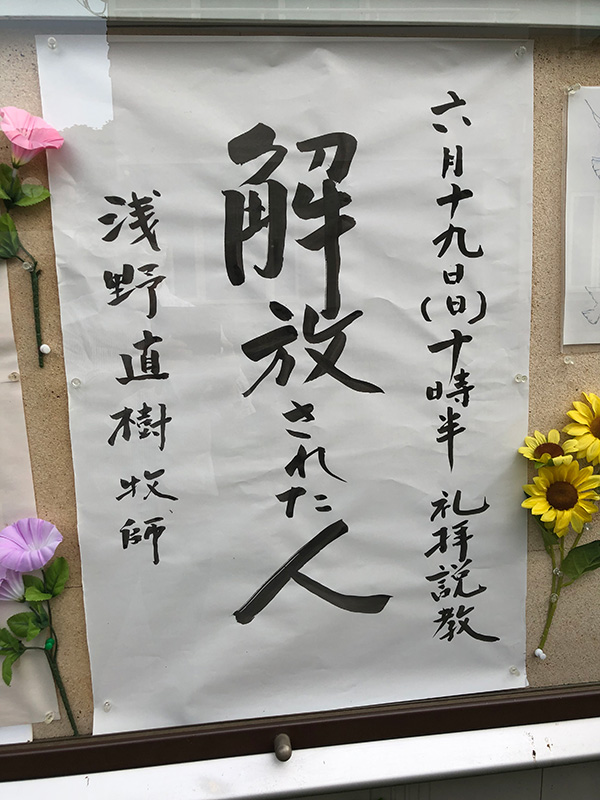 六月十九日(日)十時半 礼拝説教
解放された人
浅野直樹牧師